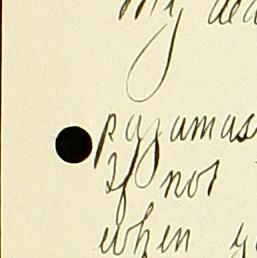 My dea
pajamas
If not
when y